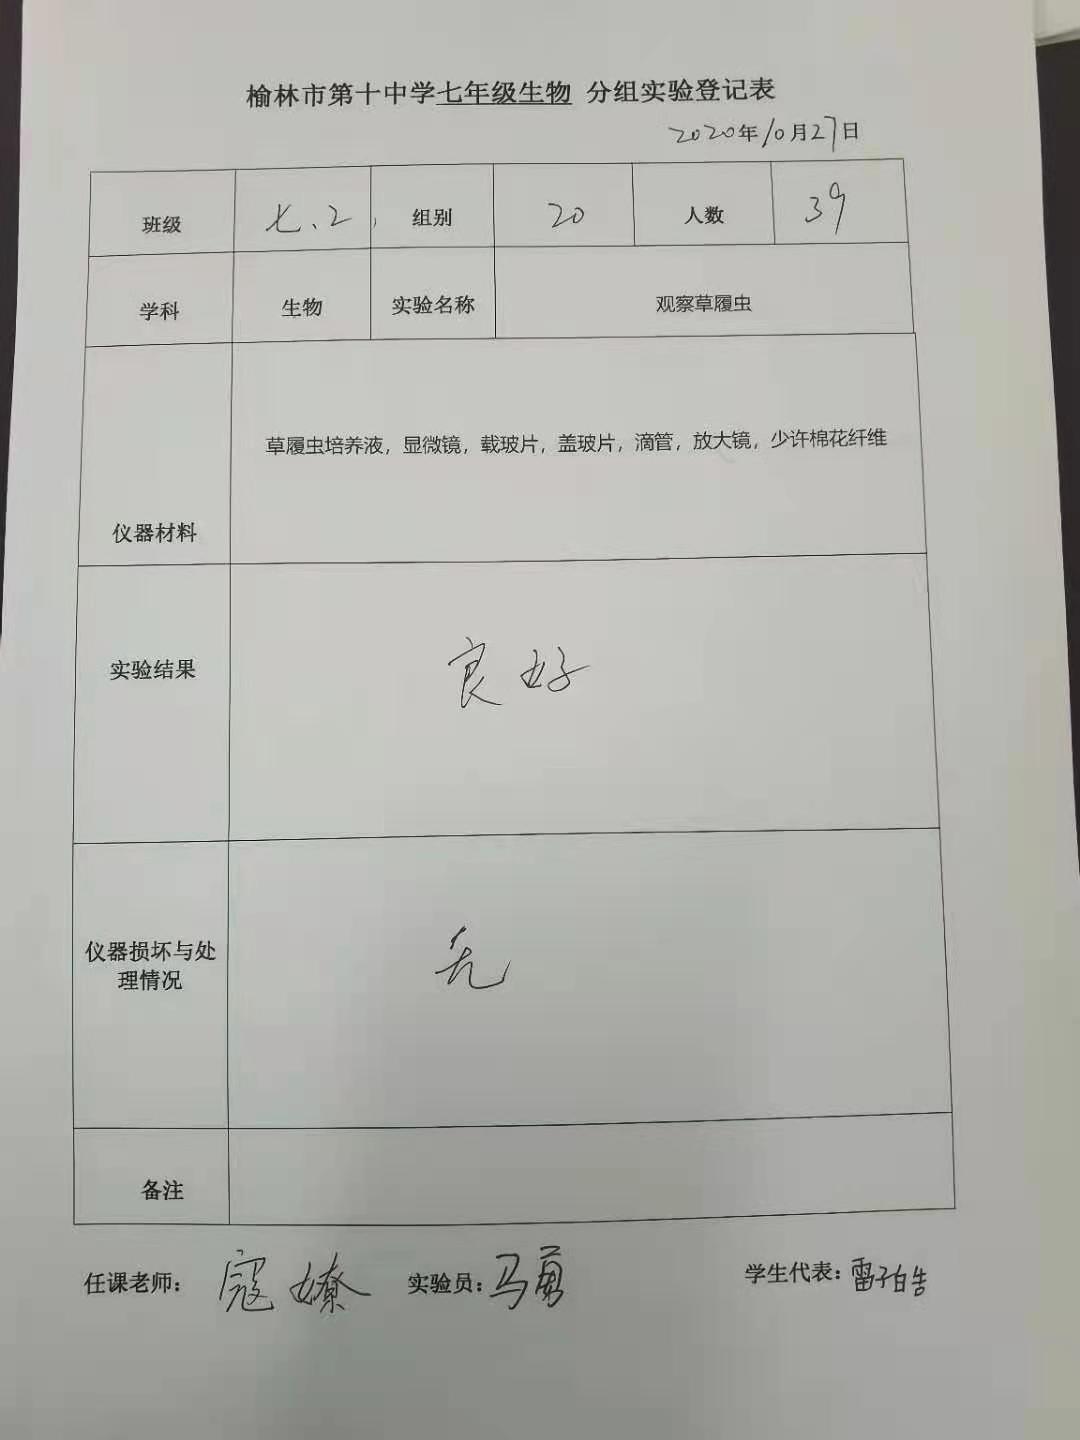 榆林市第十中学七年级生物 分组实验登记表
2020年10月27日
班级 七、2 组别 20 人数 39
学科 生物 实验名称 观察草履虫
草履虫培养液，显微镜，载玻片，盖玻片，滴管，放大镜，少许棉花纤维
仪器材料
实验结果 良好
仪器损坏与处
理情况
无
备注
任课老师： 寇嫽 实验员：马勇 学生代表：雷子皓